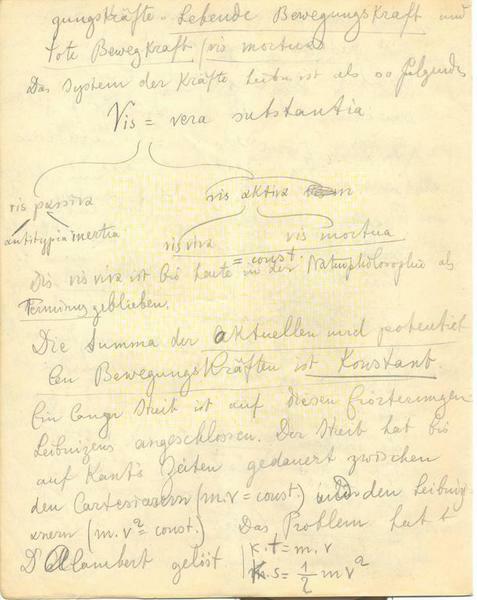 gungskräfte. Lebende Bewegungskraft und
tote Bewegkraft (vis mortua)
Das System der Kräfte Leibn. ist als so folgendes
Vis = vera substantia
vis passiva vis aktiva
antitypia inertia vis viva vis mortua
= const.
Die vis viva ist bis heute in der Naturphilosophie als
Terminus geblieben.
Die Summa der aktuellen und potentiel
len Bewegungskräften ist Konstant.
Ein langer Streit ist auf diesen Erörterungen
Leibnizens angeschlossen. Der Streit hat bis
auf Kants Zeiten gedauert zwischen
den Cartesianern (m.v = const.) und den Leibniz
anern (m.v² = const.) Das Problem hat
D'Alambert gelöst. k.t = m.v
k.s = 1/2 mv²